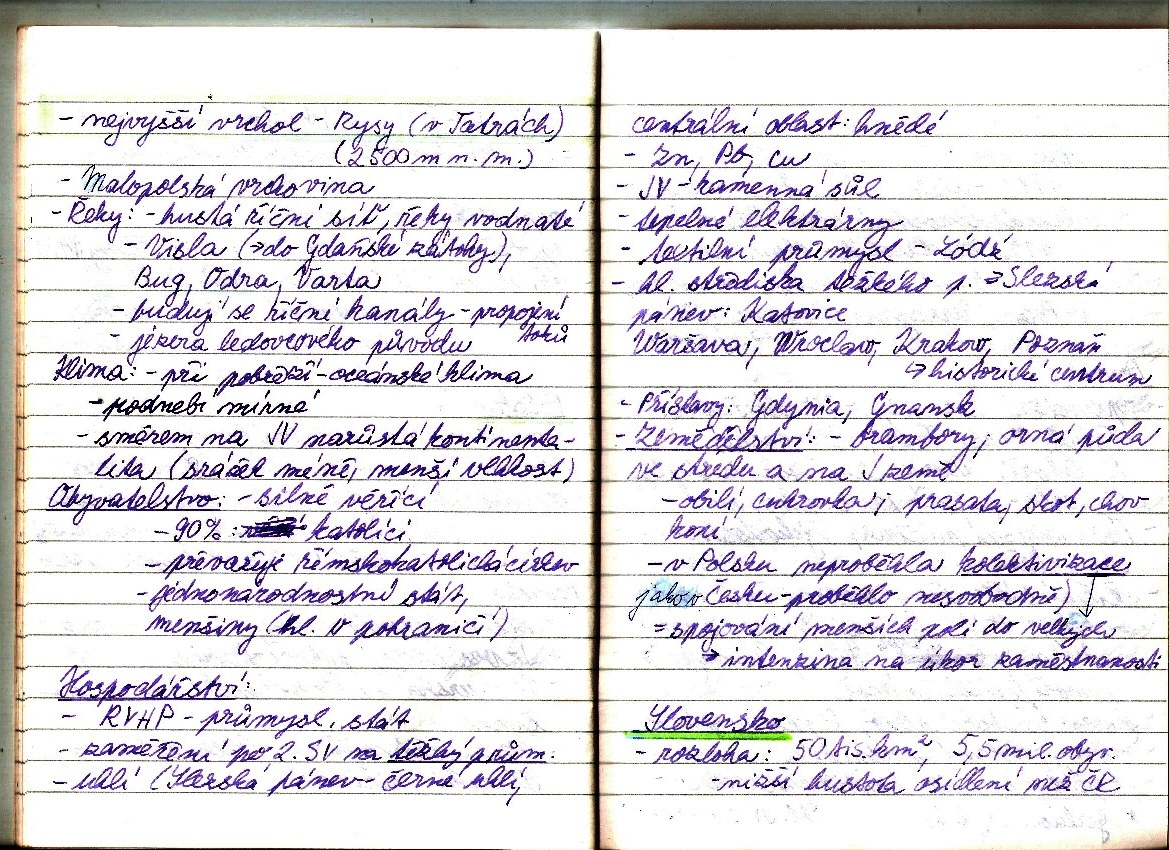 - nejvyšší vrchol - Rysy (v Tatrách)
(2500 m n. m.)
- Malopolská vrchovina
- Řeky: - hustá říční síť, řeky vodnaté
- Visla (→ do Gdaňské zátoky),
Bug, Odra, Varta
- budují se říční kanály - propojení
toků
- jezera ledovcového původu
Klima: - při pobřeží - oceánské klima
- podnebí mírné
- směrem na JV narůstá kontinenta-
lita (srážek méně, menší vlhkost)
Obyvatelstvo: - silně věřící
- 90% : katolíci
- převažuje římskokatolická církev
- jednonárodnostní stát,
menšiny (hl. v pohraničí)
Hospodářství:
- RVHP - průmysl. stát
- zaměření po 2. SV na těžký prům.
- uhlí (Slezská pánev - černé uhlí,
centrální oblast: hnědé
- Zn, Pb, Cu
- JV - kamenná sůl
- tepelné elektrárny
- textilní průmysl - Lódź
- hl. střediska těžkého p. → Slezská
pánev: Katovice
Waršava, Wroclaw, Krakow, Poznaň
↳ historické centrum
- Přístavy: Gdynia, Gnansk
- Zemědělství: - brambory; orná půda
ve středu a na J země
- obilí, cukrovka; prasata, skot, chov
koní
- v Polsku neproběhla kolektivizace
jako v Česku - proběhlo nesvobodně)
= spojování menších polí do velkých
→ intenzina na úkor zaměstnanosti
Slovensko
- rozloha: 50 tis. km², 5,5 mil. obyv.
- nižší hustota osídlení než ČR